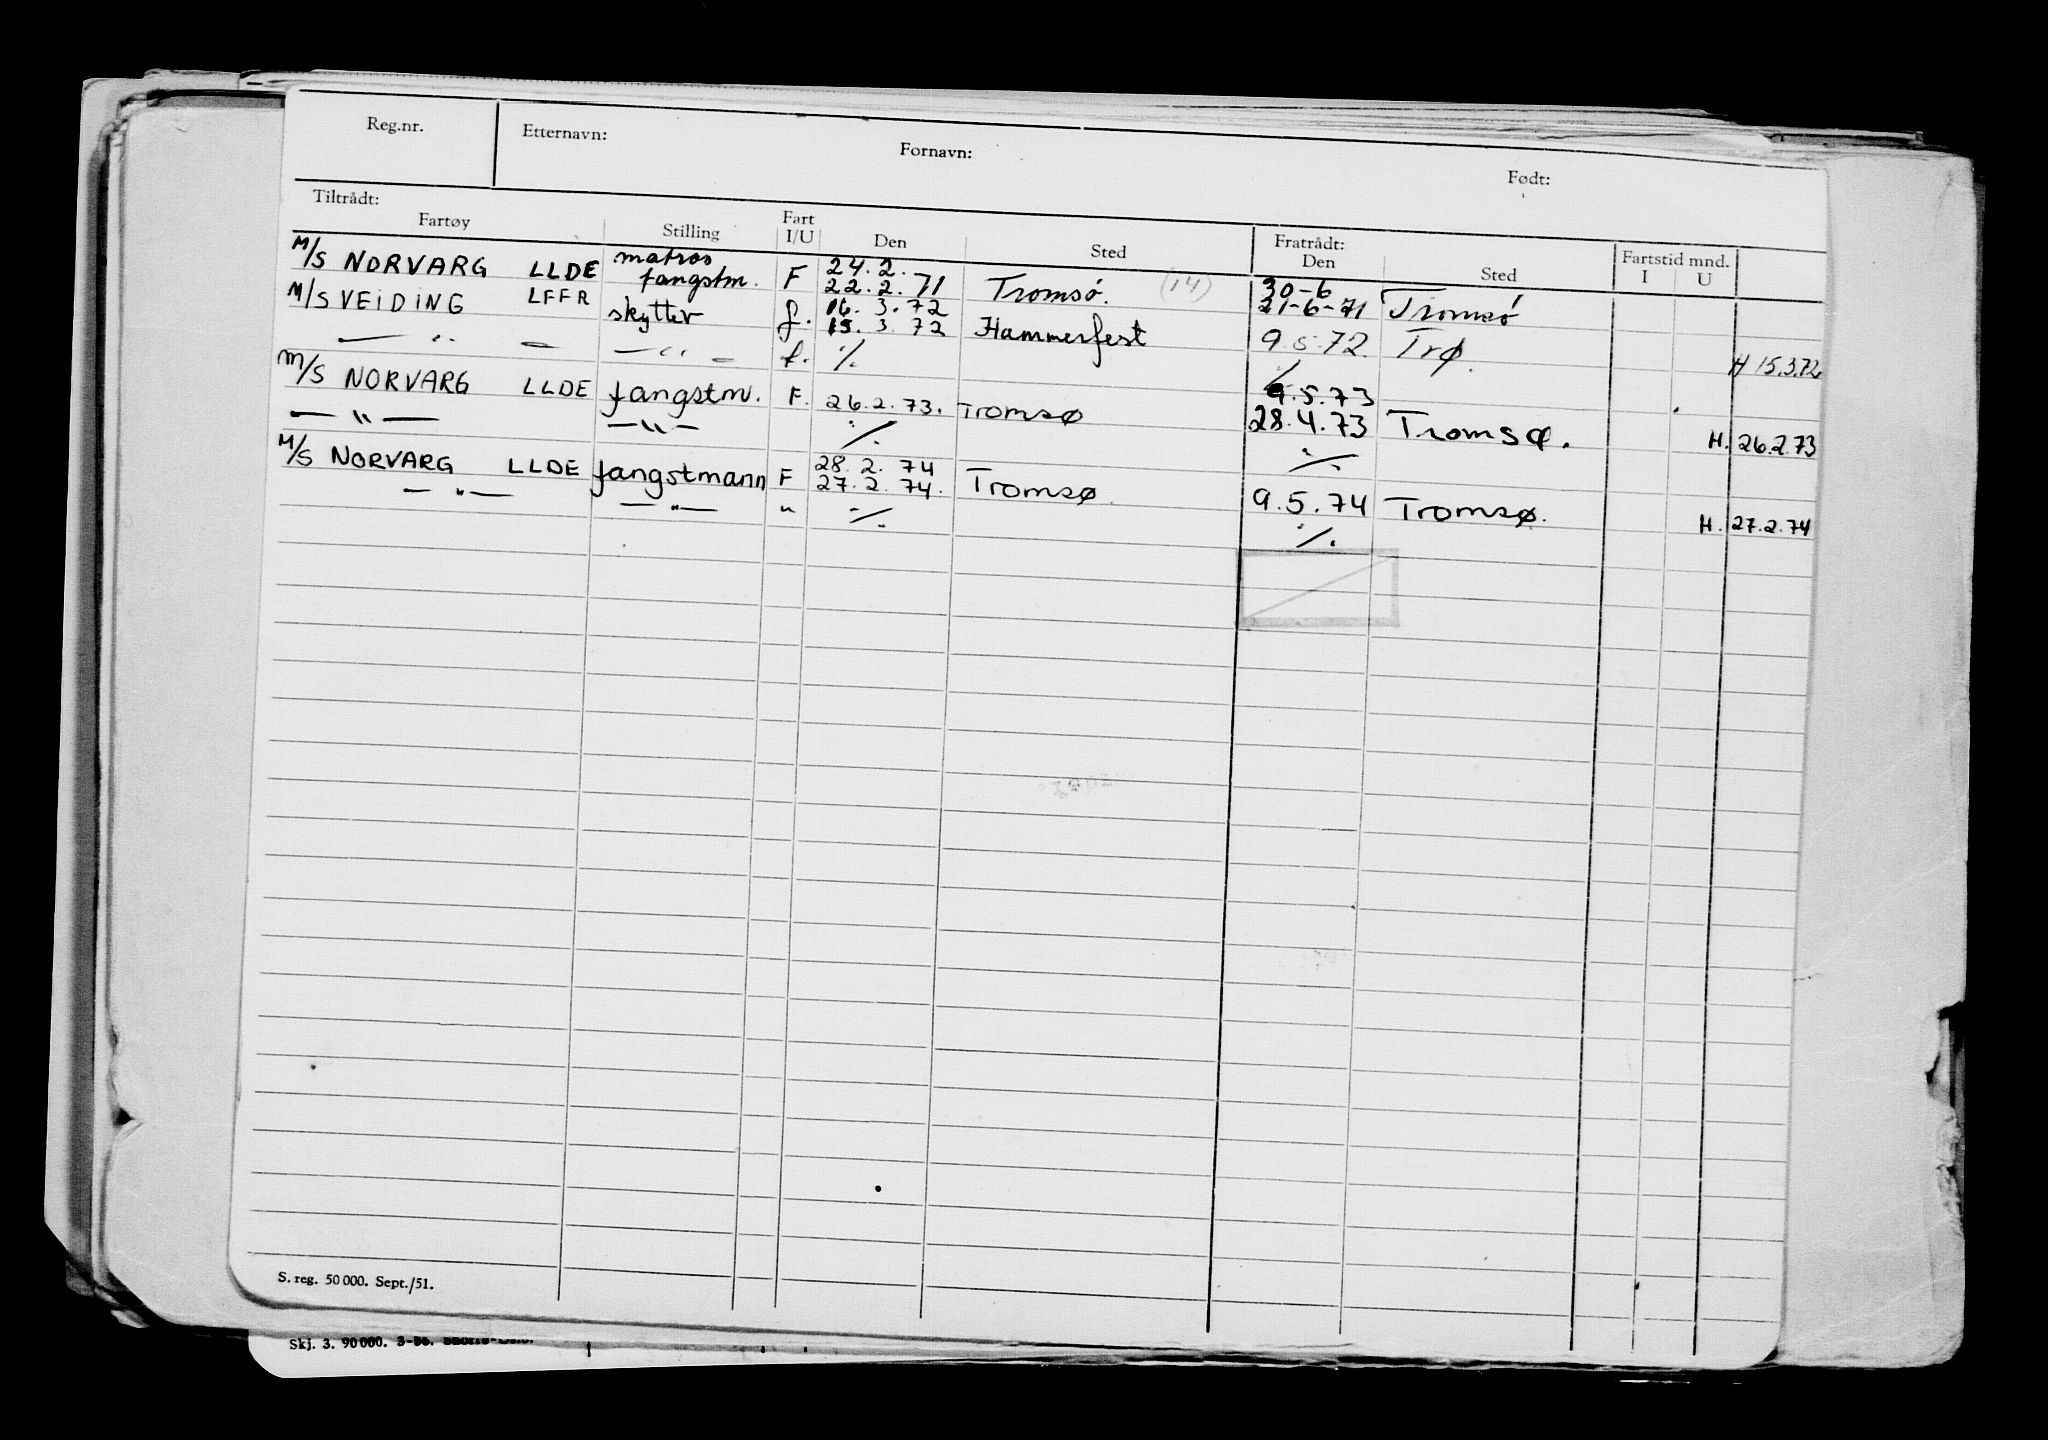 Reg.nr. Etternavn: Fornavn: Født:
Tiltrådt: Fratrådt:
Fartøy Stilling Fart I/U Den Sted Den Sted Fartstid mnd. I U
matros 24. 2. 30-6
M/S NORVARG LLDE fangstm. F 22. 2. 71 Tromsö. (14) 21-6-71 Tromsö
16. 3. 72
M/S VEIDING LFFR skytter f. 15. 3. 72 Hammerfest 9.5.72. Trø.
— " — — " — f. ./. ./. H 15.3.72
9.5.73
M/S NORVARG LLDE fangstm. F. 26.2.73. Tromsø 28.4.73 Tromsø.
— " — — " — ./. ./. H. 26.2.73
28. 2. 74
M/S NORVARG LLDE fangstmann F 27. 2. 74. Tromsø. 9.5.74 Tromsø.
— " — — " — " ./. ./. H. 27.2.74
S. reg. 50 000. Sept./51.
Skj. 3. 90 000. 3-56.